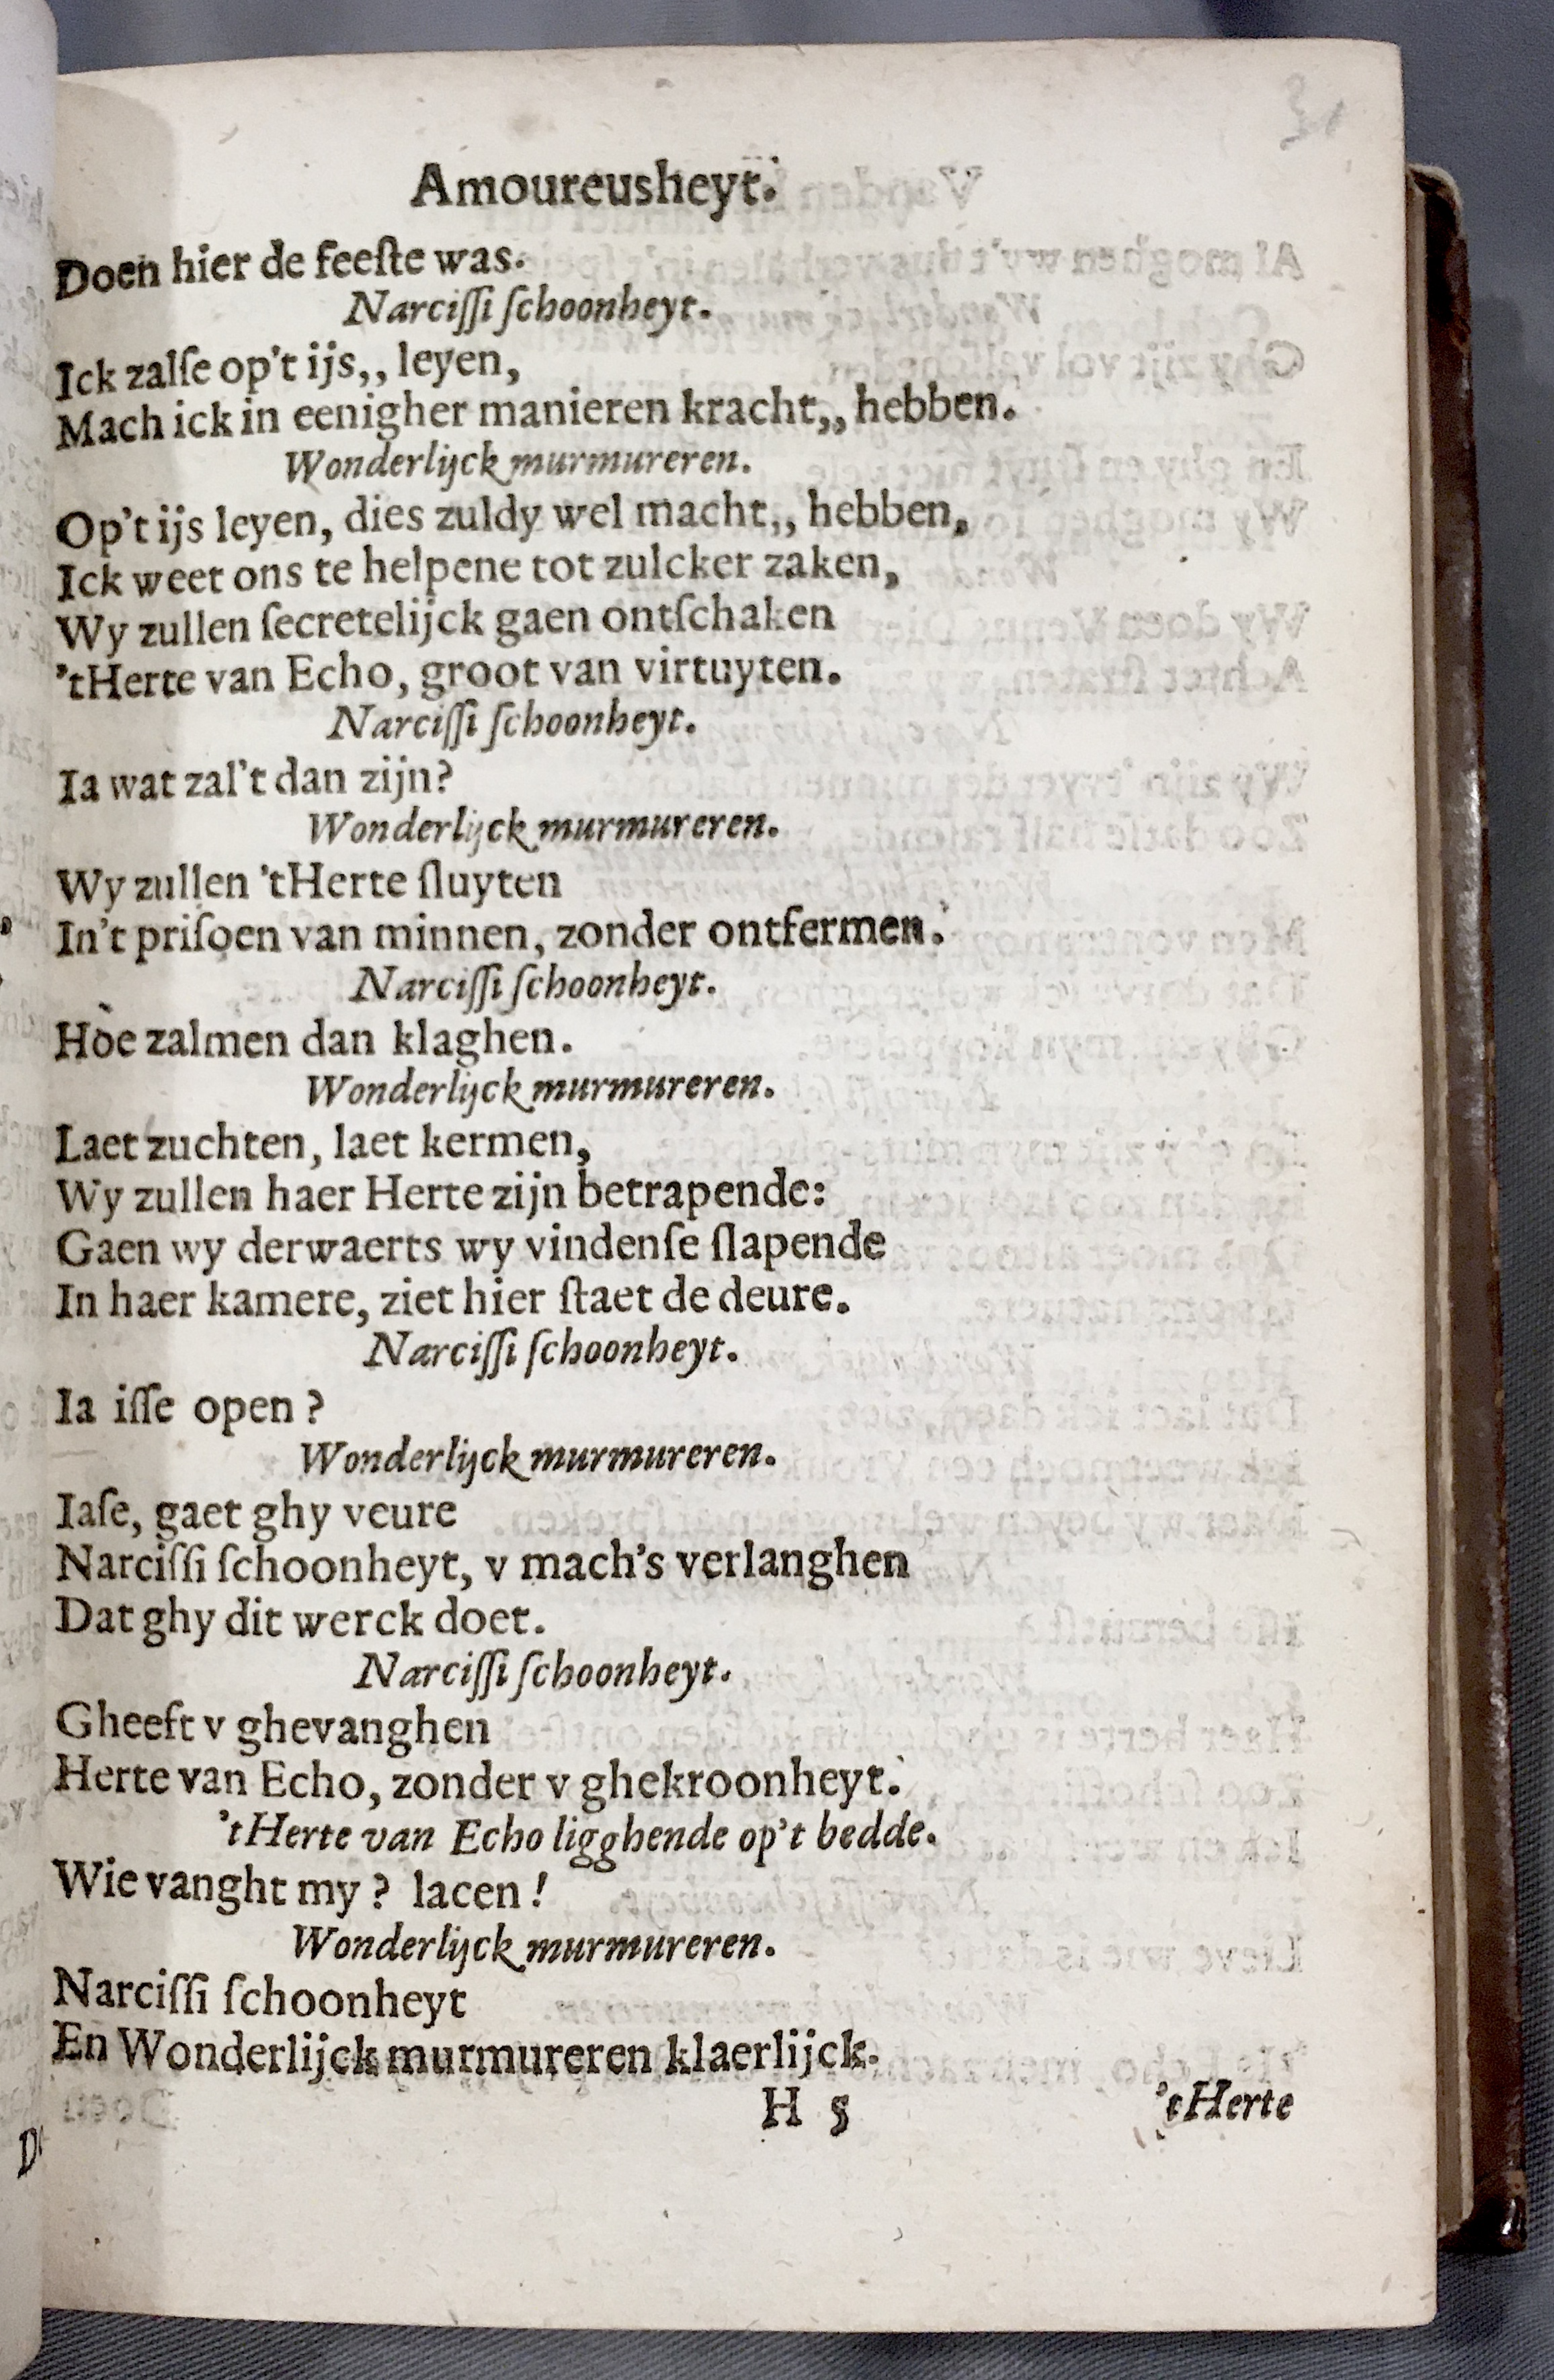 Amoureusheyt.
Doen hier de feeſte was.
Narciſſi ſchoonheyt.
Ick zalſe op't ijs,, leyen,
Mach ick in eenigher manieren kracht,, hebben.
Wonderlijck murmureren.
Op't ijs leyen, dies zuldy wel macht,, hebben,
Ick weet ons te helpene tot zulcker zaken,
Wy zullen ſecretelijck gaen ontſchaken
'tHerte van Echo, groot van virtuyten.
Narciſſi ſchoonheyt.
Ia wat zal't dan zijn?
Wonderlijck murmureren.
Wy zullen 'tHerte ſluyten
In't priſoen van minnen, zonder ontfermen.
Narciſſi ſchoonheyt.
Hoe zalmen dan klaghen.
Wonderlijck murmureren.
Laet zuchten, laet kermen,
Wy zullen haer Herte zijn betrapende:
Gaen wy derwaerts wy vindenſe ſlapende
In haer kamere, ziet hier ſtaet de deure.
Narciſſi ſchoonheyt.
Ia iſſe open?
Wonderlijck murmureren.
Iaſe, gaet ghy veure
Narciſſi ſchoonheyt, v mach's verlanghen
Dat ghy dit werck doet.
Narciſſi ſchoonheyt.
Gheeft v ghevanghen
Herte van Echo, zonder v ghekroonheyt.
'tHerte van Echo ligghende op't bedde.
Wie vanght my? lacen!
Wonderlijck murmureren.
Narciſſi ſchoonheyt
En Wonderlijck murmureren klaerlijck.
H 5 'tHerte